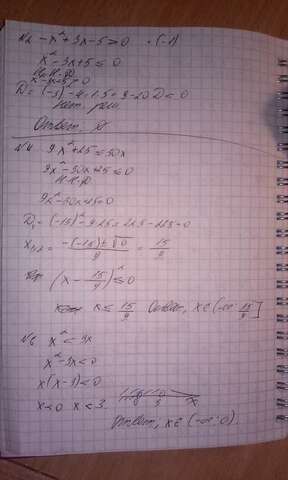 №2 -x²+3x-5>0 ·(-1)
x²-3x+5≤0
Н.Н.Ф
D=(-3)²-4·1·5=9-20 D<0
нет. реш
Ответ. ∅
№4 9x²+25≤30x
9x²-30x+25≤0
Н.Н.Ф
9x²-30x+25=0
D₁=(-15)²-9·25=225-225=0
x₁,₂= -(-15)±√0 / 9 = 15/9
(x-15/9)²≤0
x≤15/9 Ответ, x∈(-∞;15/9]
№6 x²<3x
x²-3x<0
x(x-3)<0
x<0 x<3
Ответ, x∈(-∞;0).